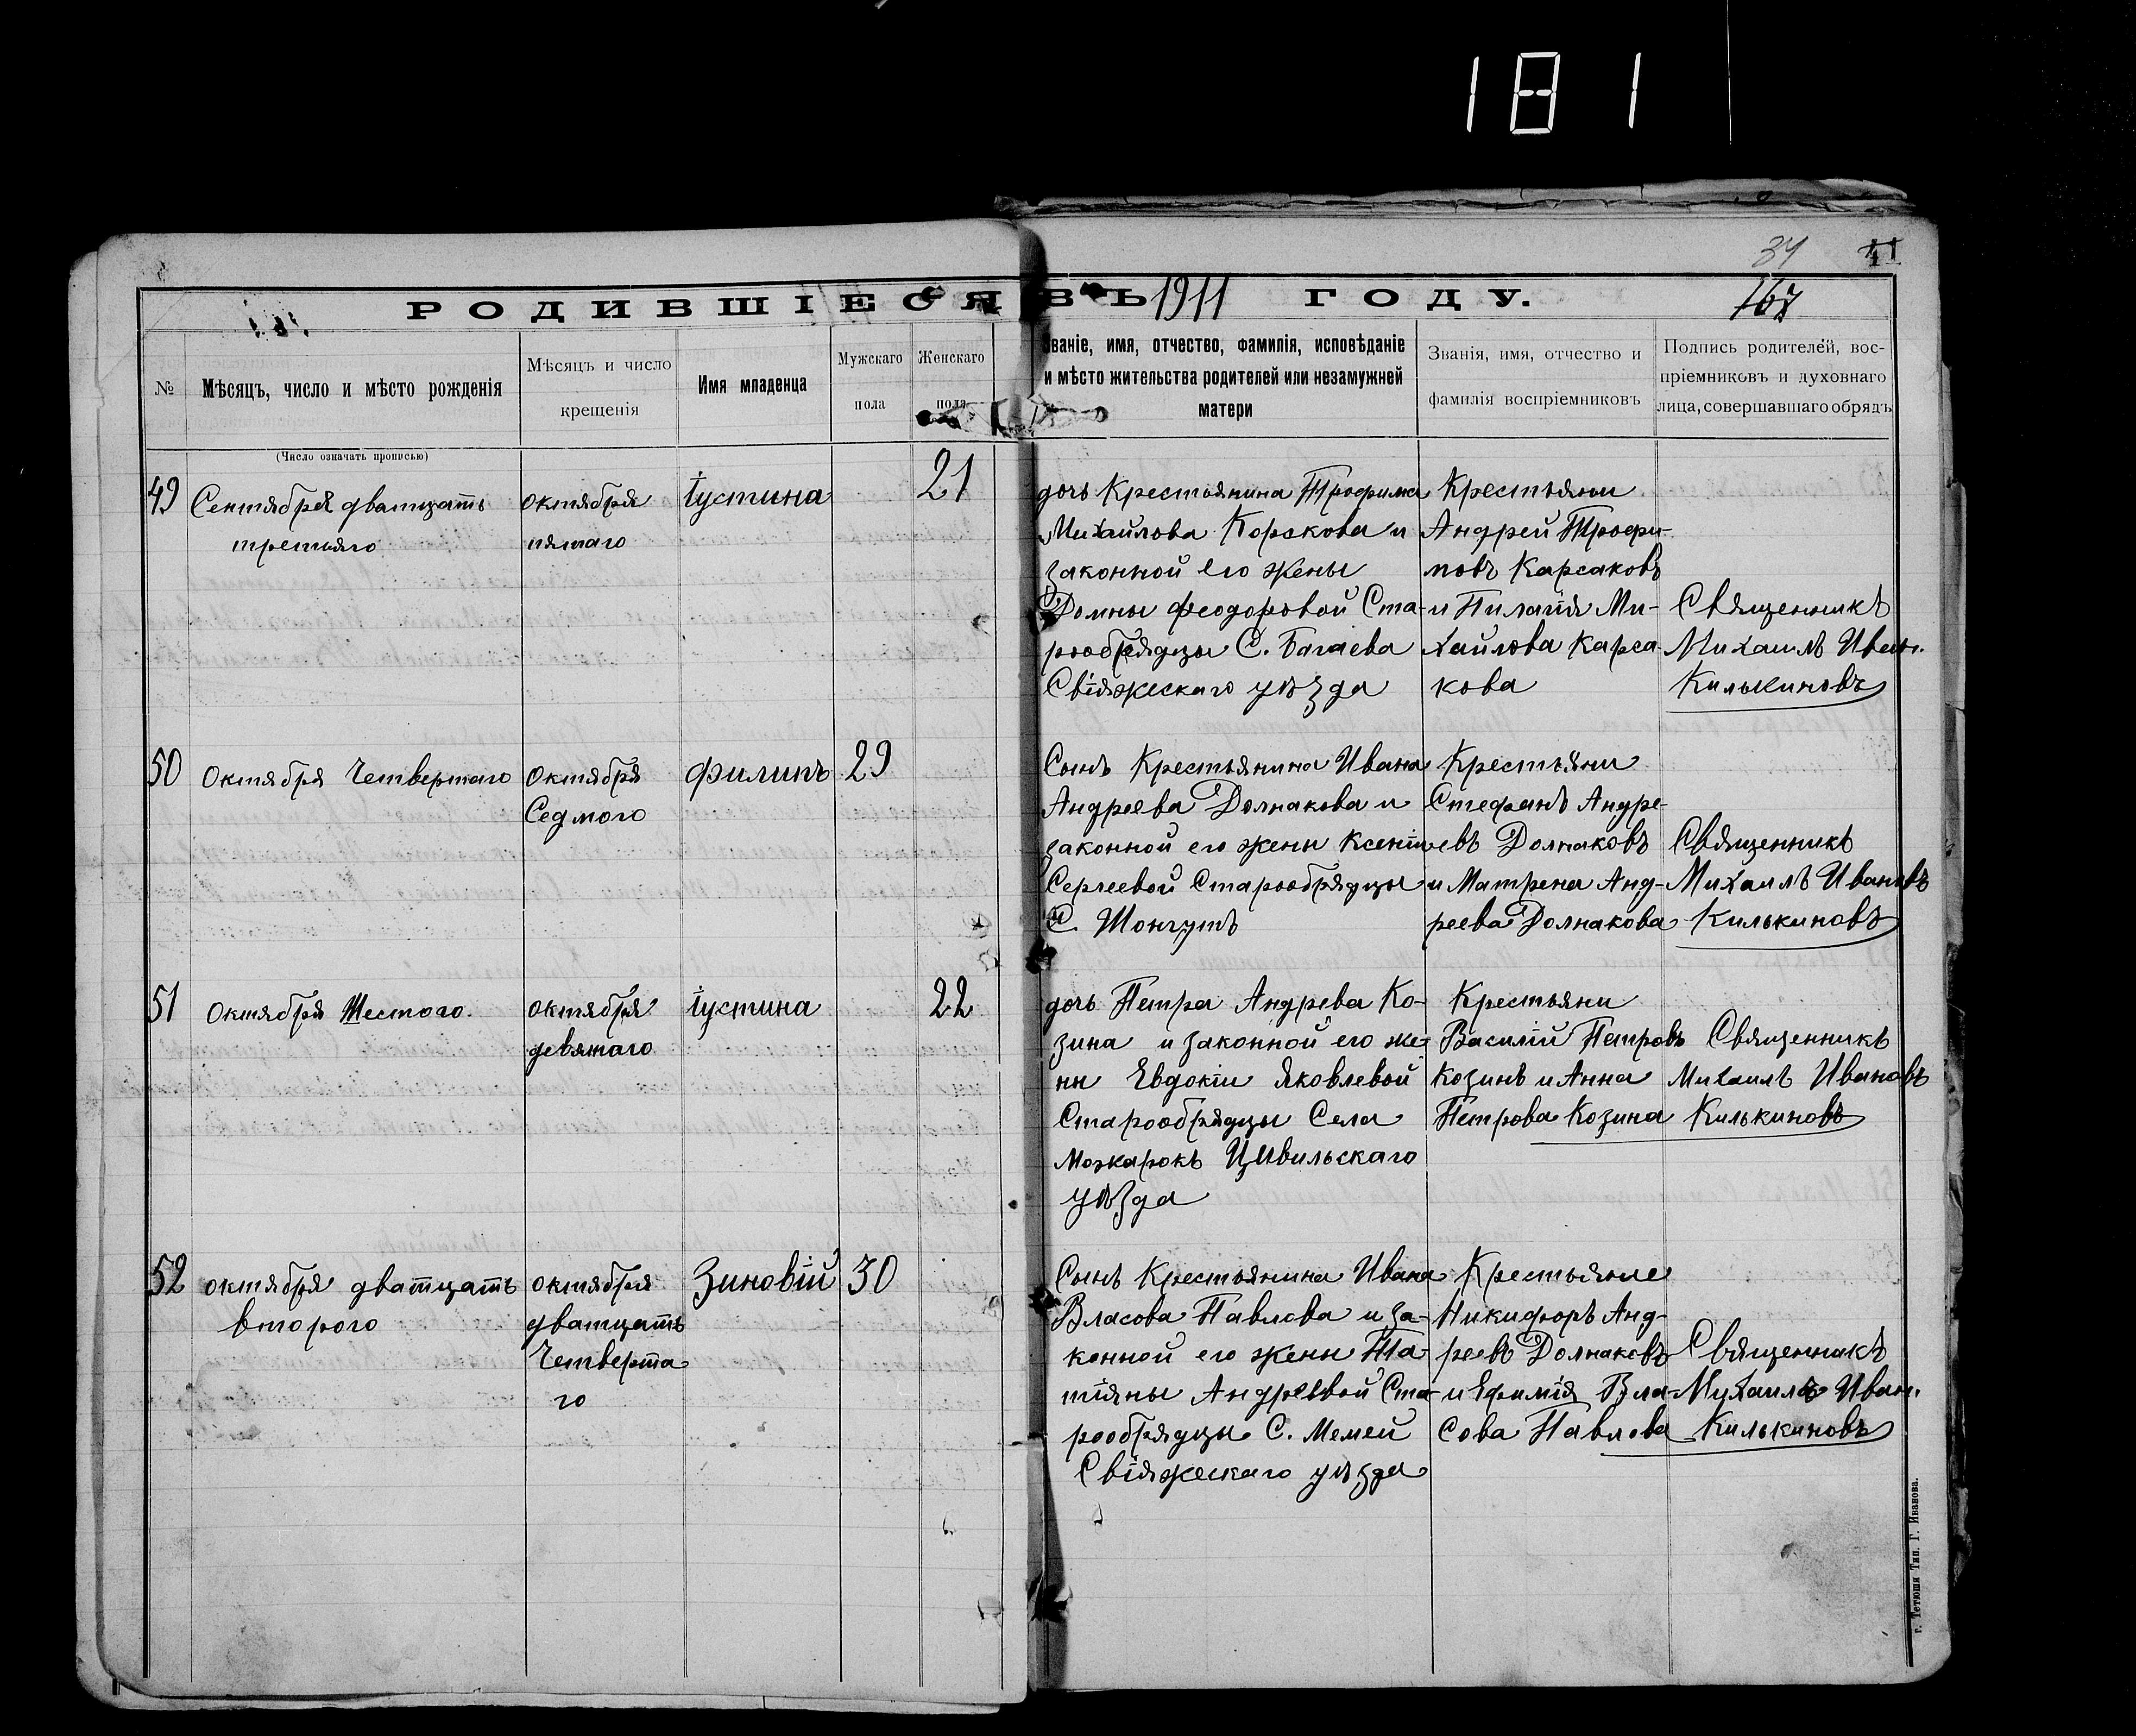 181
34
41
РОДИВШІЕСЯ ВЪ 1911 ГОДУ.
167
№
Мѣсяцъ, число и мѣсто рожденія
Мѣсяцъ и число
крещенія
Имя младенца
Мужскаго
пола
Женскаго
пола
Званіе, имя, отчество, фамилія, исповѣданіе
и мѣсто жительства родителей или незамужней
матери
Званія, имя, отчество и
фамилія воспріемниковъ
Подпись родителей, вос-
пріемниковъ и духовнаго
лица, совершавшаго обрядъ
(Число означать прописью)
49
Сентября дватцать
третьяго
октября
пятаго
Іустина
21
дочь Крестьянина Трофима
Михайлова Корскова и
законной его жены
Домны Феодоровой Ста-
рообрядцы С. Багаева
Свіяжескаго уѣзда
Крестьяни
Андрей Трофи-
мовъ Карсаковъ
и Пилагія Ми-
хайлова Карса-
кова
Священникъ
Михаилъ Иван.
Килькиновъ
50
Октября Четвертаго
Октября
Седмого
Филипъ
29
Сынъ Крестьянина Ивана
Андреева Долнакова и
законной его жены Ксеніи
Сергеевой Старообрядцы
С. Шонгутъ
Крестьяни
Стефанъ Андре-
евъ Долнаковъ
и Матрена Анд-
реева Долнакова
Священникъ
Михаилъ Ивановъ
Килькиновъ
51
Октября Шестого.
октября
девятаго
Іустина
22
дочь Петра Андрева Ко-
зина и законной его же-
ны Евдокіи Яковлевой
Старообрядцы Села
Можарокъ Цивильскаго
уѣзда
Крестьяни
Василій Петровъ
Козинъ и Анна
Петрова Козина
Священникъ
Михаилъ Ивановъ
Килькиновъ
52
октября дватцать
второго
октября
дватцать
Четверта
го
Зиновій
30
Сынъ Крестьянина Ивана
Власова Павлова и за-
конной его жены Та-
тіяны Андреевой Ста-
рообрядцы С. Мемей
Свіяжескаго уѣзда
Крестьяние
Никифоръ Анд-
реевъ Долнаковъ
и Ефимія Вла-
сова Павлова
Священникъ
Михаилъ Иван.
Килькиновъ
г. Тетюши Тип. Г. Иванова.